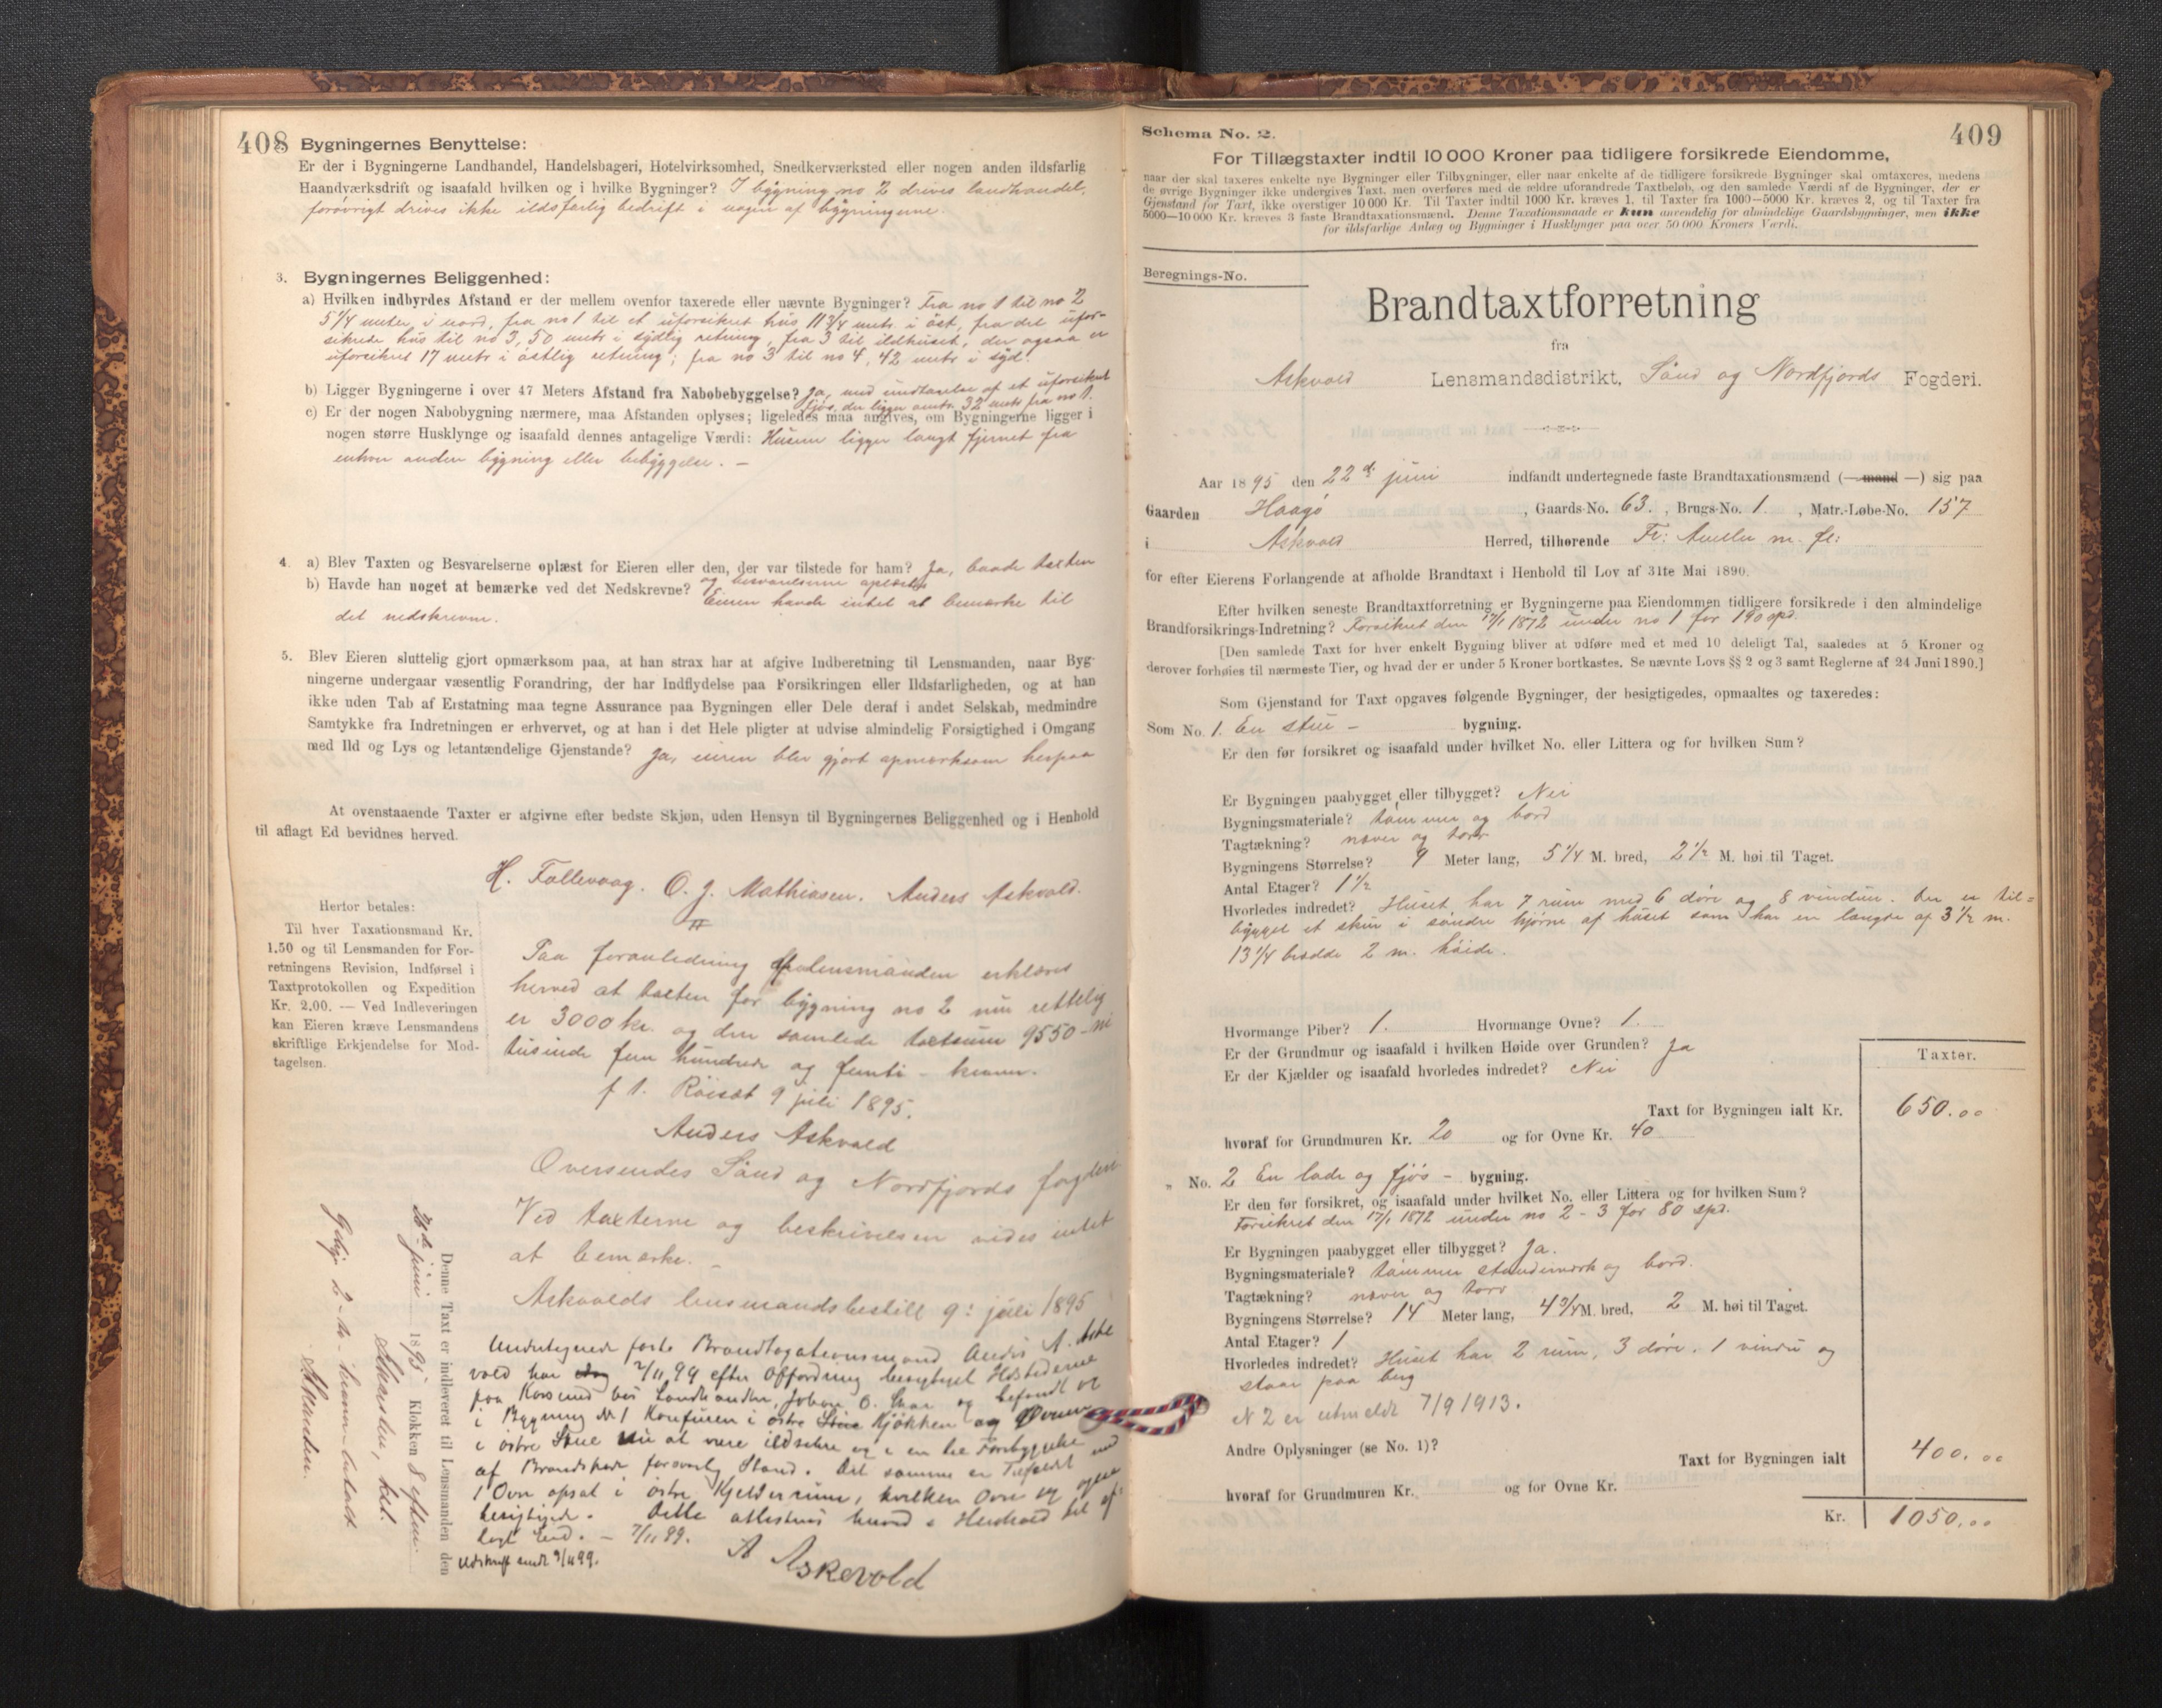 408
Bygningernes Benyttelse:
Er der i Bygningerne Landhandel, Handelsbageri, Hotelvirksomhed, Snedkerværksted eller nogen anden ildsfarlig
Haandværksdrift og isaafald hvilken og i hvilke Bygninger? I bygning no 2 drives landhandel,
forøvrigt drives ikke ildsfarlig bedrift i nogen af bygningerne.
3. Bygningernes Beliggenhed:
a) Hvilken indbyrdes Afstand er der mellem ovenfor taxerede eller nævnte Bygninger? Fra no 1 til no 2
5 1/4 meter i nord, fra no 1 til et uforsikret hus 11 3/4 metr i øst, fra det ufor-
sikrede hus til no 3, 50 metr i sydlig retning, fra 3 til ildhuset, der ogsaa er
uforsikret 17 metr i østlig retning; fra no 3 til no 4, 42 metr i syd.
b) Ligger Bygningerne i over 47 Meters Afstand fra Nabobebyggelse? Ja, med undtagelse af et uforsikret
fjøs, der ligger 32 metr fra no 1.
c) Er der nogen Nabobygning nærmere, maa Afstanden oplyses; ligeledes maa angives, om Bygningerne ligger i
nogen større Husklynge og isaafald dennes antagelige Værdi: Husene ligger langt fjernet fra
enhver anden bygning eller bebyggelse. —
4. a) Blev Taxten og Besvarelserne oplæst for Eieren eller den, der var tilstede for ham? Ja, baade taxten
og besvarelserne oplæstes
b) Havde han noget at bemærke ved det Nedskrevne? Eieren havde intet at bemærke til
det nedskrevne.
5. Blev Eieren sluttelig gjort opmærksom paa, at han strax har at afgive Indberetning til Lensmanden, naar Byg-
ningerne undergaar væsentlig Forandring, der har Indflydelse paa Forsikringen eller Ildsfarligheden, og at han
ikke uden Tab af Erstatning maa tegne Assurance paa Bygningen eller Dele deraf i andet Selskab, medmindre
Samtykke fra Indretningen er erhvervet, og at han i det Hele pligter at udvise almindelig Forsigtighed i Omgang
med Ild og Lys og letantændelige Gjenstande? Ja, eieren blev gjort opmærksom herpaa
At ovenstaaende Taxter er afgivne efter bedste Skjøn, uden Hensyn til Bygningernes Beliggenhed og i Henhold
til aflagt Ed bevidnes herved.
H. Follevaag. O. J. Mathiasen. Anders Askvold.
Herfor betales:
Til hver Taxationsmand Kr.
1.50 og til Lensmanden for For-
retningens Revision, Indførsel i
Taxtprotokollen og Expedition
Kr. 2.00. — Ved Indleveringen
kan Eieren kræve Lensmandens
skriftlige Erkjendelse for Mod-
tagelsen.
Paa foranledning af lensmanden erklæres
herved at taxten for bygning no 2 nu rettelig
er 3000 kr. og den samlede taxtsum 9550 - ni
tusinde fem hundrede og femti - kroner.
9 juli 1895.
Anders Askvold
Oversendes Sønd og Nordfjords fogderi
Ved taxterne og beskrivelsen vides intet
at bemærke. —
Askvolds lensmandsbestill 9: juli 1895
Undertegnede faste Brandtaxationsmand Anders A. Aske
vold har 7/11 99 efter Opfordring besigtiget Ildstederne
paa hos Landhandler Johan O. og befandt
i Bygning No 1 Komfuren i østre Stue Kjøkken og Ovnen
i østre Stue at være ildsikre og i en
af Brandskade forsvarlig Stand. Det samme er Tilfældet med
1 Ovn opsat i østre Kjelderrum, hvilken Ovn og ogsaa
besigtigede. Dette attesteres herved i Henhold til af-
lagt Eed. — 7/11 99.
Udskrift sendt 9/11 99.
A Askevold
Denne Taxt er indleveret til Lensmanden den
26de juni 1895 Klokken 8 eftm.
Gebyr 2 - to - kroner betalt
409
Schema No. 2.
For Tillægstaxter indtil 10 000 Kroner paa tidligere forsikrede Eiendomme,
naar der skal taxeres enkelte nye Bygninger eller Tilbygninger, eller naar enkelte af de tidligere forsikrede Bygninger skal omtaxeres, medens
de øvrige Bygninger ikke undergives Taxt, men overføres med de ældre uforandrede Taxtbeløb, og den samlede Værdi af de Bygninger, der er
Gjenstand for Taxt, ikke overstiger 10 000 Kr. Til Taxter indtil 1000 Kr. kræves 1, til Taxter fra 1000—5000 Kr. kræves 2, og til Taxter fra
5000—10 000 Kr. kræves 3 faste Brandtaxationsmænd. Denne Taxationsmaade er kun anvendelig for almindelige Gaardsbygninger, men ikke
for ildsfarlige Anlæg og Bygninger i Husklynger paa over 50 000 Kroners Værdi.
Beregnings-No.
Brandtaxtforretning
fra
Askvold Lensmandsdistrikt, Sønd og Nordfjords Fogderi.
Aar 1895 den 22d. juni indfandt undertegnede faste Brandtaxationsmænd (— mand —) sig paa
Gaarden Haagø, Gaards-No. 63., Brugs-No. 1., Matr.-Løbe-No. 157
i Askvold Herred, tilhørende Fr: m. fl:
for efter Eierens Forlangende at afholde Brandtaxt i Henhold til Lov af 31te Mai 1890.
Efter hvilken seneste Brandtaxtforretning er Bygningerne paa Eiendommen tidligere forsikrede i den almindelige
Brandforsikrings-Indretning? Forsikret den 17/1 1872 under no 1 for 190 spd.
[Den samlede Taxt for hver enkelt Bygning bliver at udføre med et med 10 deleligt Tal, saaledes at 5 Kroner og
derover forhøies til nærmeste Tier, og hvad der er under 5 Kroner bortkastes. Se nævnte Lovs §§ 2 og 3 samt Reglerne af 24 Juni 1890.]
Som Gjenstand for Taxt opgaves følgende Bygninger, der besigtigedes, opmaaltes og taxeredes:
Som No. 1. En stue - bygning.
Er den før forsikret og isaafald under hvilket No. eller Littera og for hvilken Sum?
Er Bygningen paabygget eller tilbygget? Nei
Bygningsmateriale? tømmer og bord
Tagtækning? næver og torv
Bygningens Størrelse? 9 Meter lang, 5 1/4 M. bred, 2 1/2 M. høi til Taget.
Antal Etager? 1 1/2
Hvorledes indredet? Huset har 7 rum med 6 døre og 8 vinduer. Der er til-
bygget et skur i søndre hjørne af huset som har en længde af 3 1/2 m.
13 1/4 bredde 2 m. høide.
Hvormange Piber? 1. Hvormange Ovne? 1.
Er der Grundmur og isaafald i hvilken Høide over Grunden? Ja
Er der Kjælder og isaafald hvorledes indredet? Nei
Taxter.
Taxt for Bygningen ialt Kr. 650.00
hvoraf for Grundmuren Kr. 20 og for Ovne Kr. 40
„ No. 2 En lade og fjøs - bygning.
Er den før forsikret, og isaafald under hvilket No. eller Littera og for hvilken Sum?
Forsikret den 17/1 1872 under no 2 - 3 for 80 spd.
Er Bygningen paabygget eller tilbygget? Ja.
Bygningsmateriale? tømmer stenderværk og bord.
Tagtækning? næver og torv
Bygningens Størrelse? 14 Meter lang, 4 3/4 M. bred, 2 M. høi til Taget.
Antal Etager? 1
Hvorledes indredet? Huset har 2 rum, 3 døre. 1 vindu og
staar paa berg
N 2 er utmeldt 7/9 1913.
Andre Oplysninger (se No. 1)?
Taxt for Bygningen ialt 400.00
hvoraf for Grundmuren Kr. og for Ovne Kr.
Kr. 1050.00